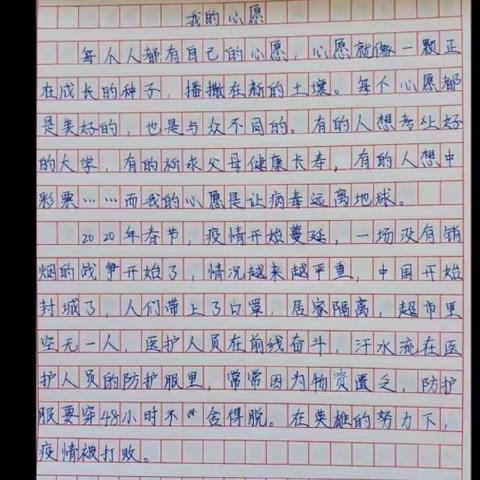 我的心愿
每个人都有自己的心愿，心愿就像一颗正
在成长的种子，播撒在新的土壤。每个心愿都
是美好的，也是与众不同的。有的人想考上好
的大学，有的祈求父母健康长寿，有的人想中
彩票……而我的心愿是让病毒远离地球。
2020年春节，疫情开始蔓延，一场没有销
烟的战争开始了，情况越来越严重，中国开始
封城了，人们带上了口罩，居家隔离，超市里
空无一人，医护人员在前线奋斗，汗水流在医
护人员的防护服里，常常因为物资匮乏，防护
服要穿48小时不舍得脱。在英雄的努力下，
疫情被打败。